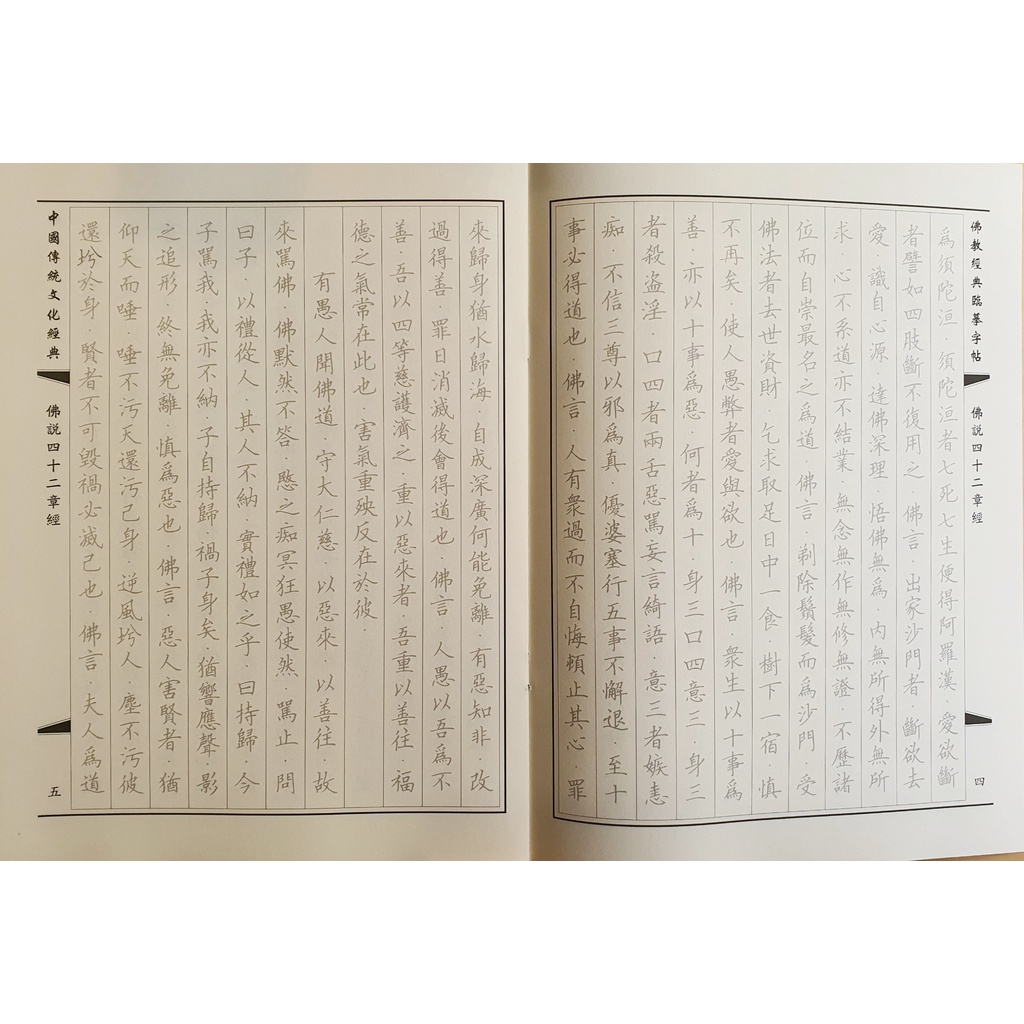 佛教經典臨摹字帖
佛説四十二章經
四
爲須陀洹·須陀洹者七死七生便得阿羅漢·愛欲斷
者譬如四肢斷不復用之·佛言·出家沙門者·斷欲去
愛·識自心源·達佛深理·悟佛無爲·内無所得外無所
求·心不系道亦不結業·無念無作無修無證·不歷諸
位而自崇最名之爲道·佛言·剃除鬚髮而爲沙門·受
佛法者去世資財·乞求取足日中一食·樹下一宿·慎
不再矣·使人愚弊者愛與欲也·佛言·衆生以十事爲
善·亦以十事爲惡·何者爲十·身三口四意三·身三
者殺盜淫·口四者兩舌惡罵妄言綺語·意三者嫉恚
痴·不信三尊以邪爲真·優婆塞行五事不懈退·至十
事必得道也·佛言·人有衆過而不自悔頓止其心·罪
來歸身猶水歸海·自成深廣何能免離·有惡知非·改
過得善·罪日消滅後會得道也·佛言·人愚以吾爲不
善·吾以四等慈護濟之·重以惡來者·吾重以善往·福
德之氣常在此也·害氣重殃反在於彼·
有愚人聞佛道·守大仁慈·以惡來·以善往·故
來罵佛·佛默然不答·愍之痴冥狂愚使然·罵止·問
曰子·以禮從人·其人不納·實禮如之乎·曰持歸·今
子罵我·我亦不納·子自持歸·禍子身矣·猶響應聲·影
之追形·終無免離·慎爲惡也·佛言·惡人害賢者·猶
仰天而唾·唾不污天還污己身·逆風坋人·塵不污彼
還坋於身·賢者不可毀禍必滅己也·佛言·夫人爲道
中國傳統文化經典
佛説四十二章經
五